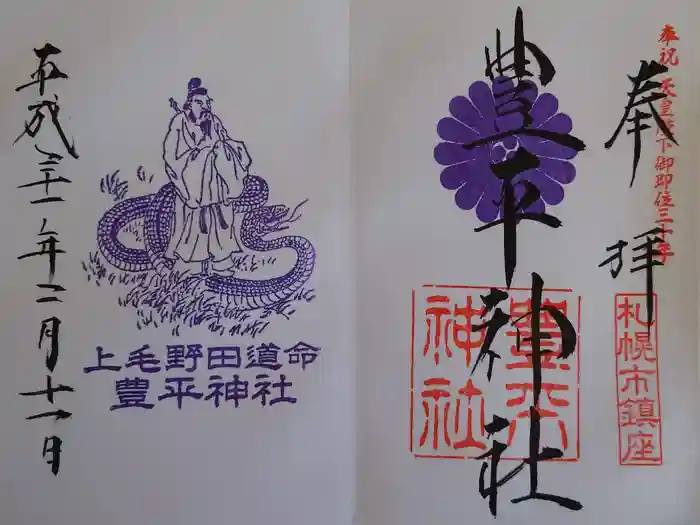 奉祝 天皇陛下御即位三十年
奉拝
札幌市鎮座
豊平神社
豊平
神社
上毛野田道命
豊平神社
平成三十一年二月十一日